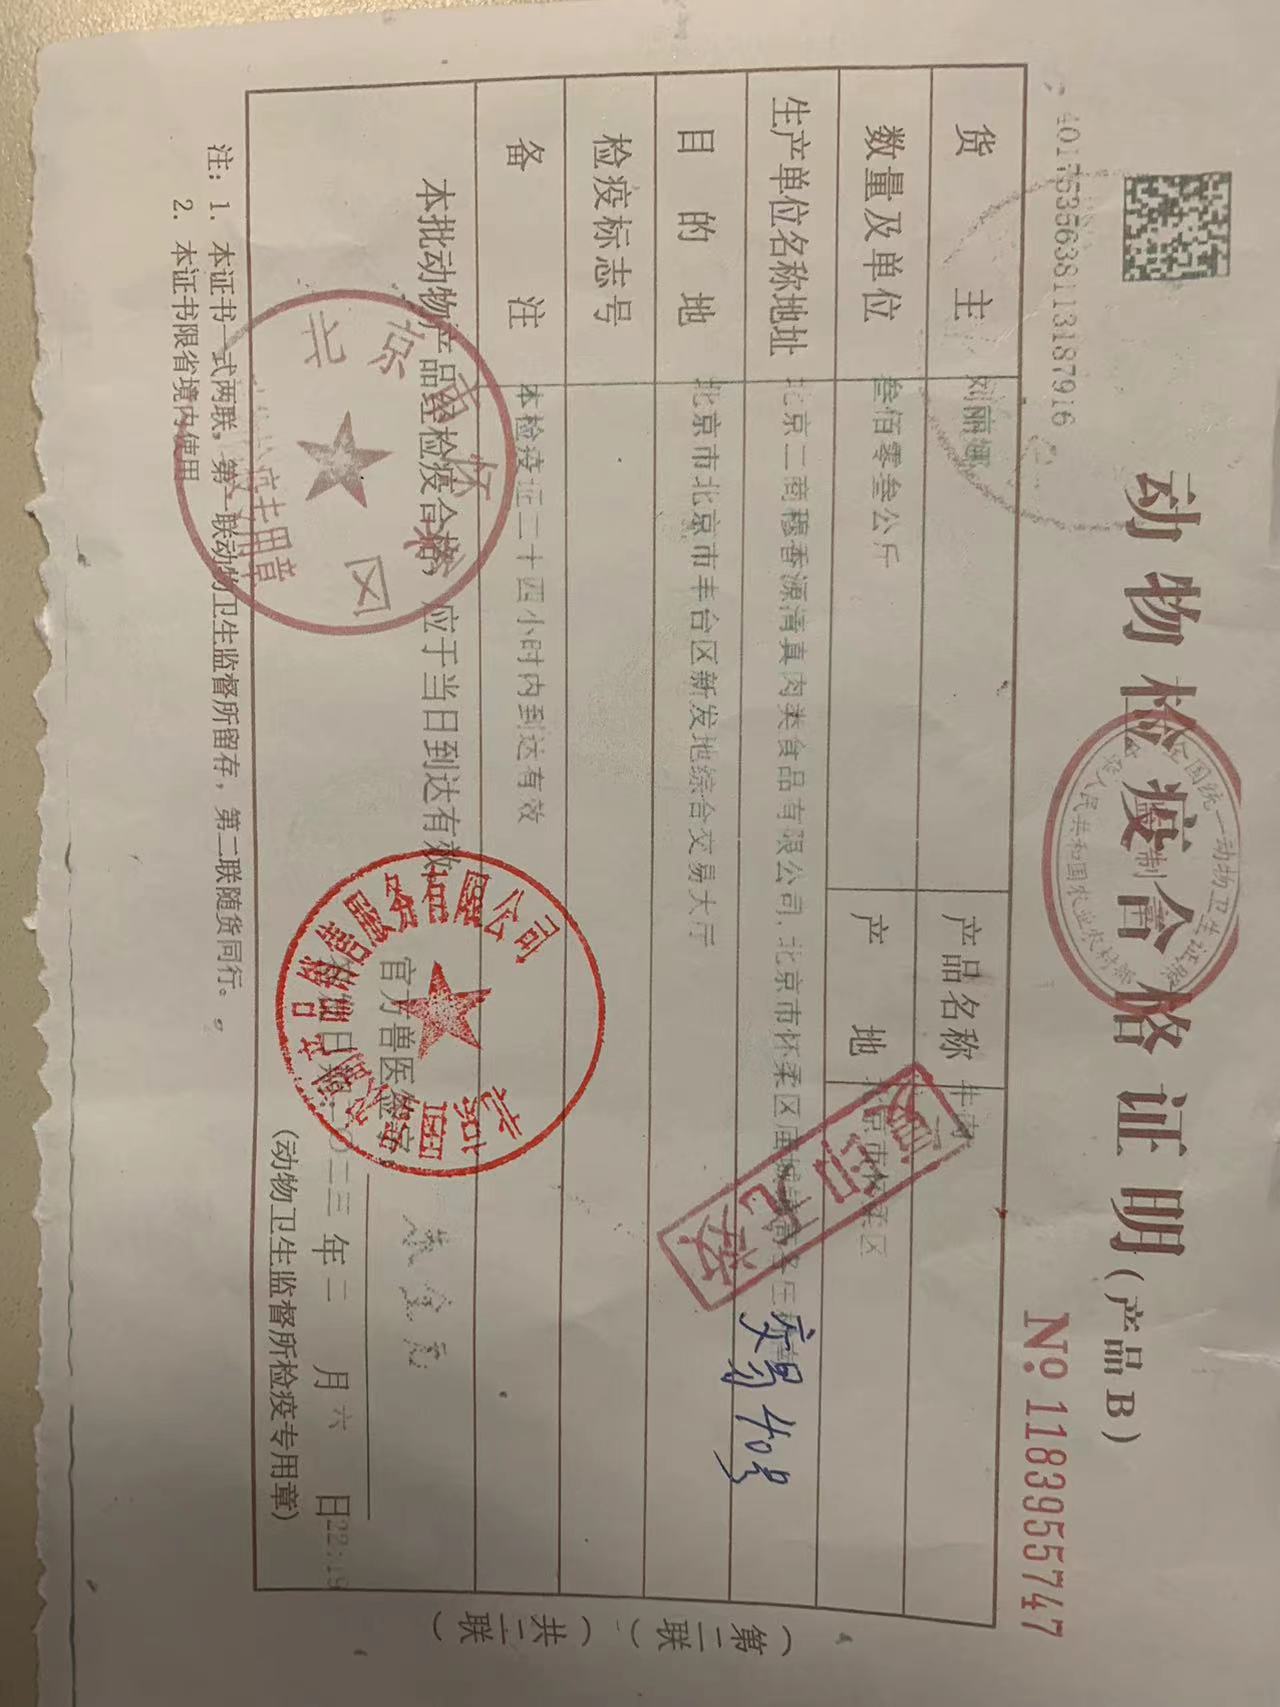 4017535638113187916
动物检疫合格证明(产品B)
No.1183955747
全国统一动物卫生证章
监制
中华人民共和国农业农村部
货 主 刘丽娜 产品名称 牛肉
数量及单位 叁佰零叁公斤 产 地 北京市怀柔区
生产单位名称地址 北京二商穆香源清真肉类食品有限公司,北京市怀柔区庙城镇高各庄村
目 的 地 北京市北京市丰台区新发地综合交易大厅
复印无效
交易40号
检疫标志号
备 注 本检疫证二十四小时内到达有效
本批动物产品经检疫合格,应于当日到达有效。
官方兽医签字:
签发日期:二〇二三年二月六日22:19
(动物卫生监督所检疫专用章)
注:1. 本证书一式两联,第一联动物卫生监督所留存,第二联随货同行。
2. 本证书限省境内使用
(第二联)(共二联)